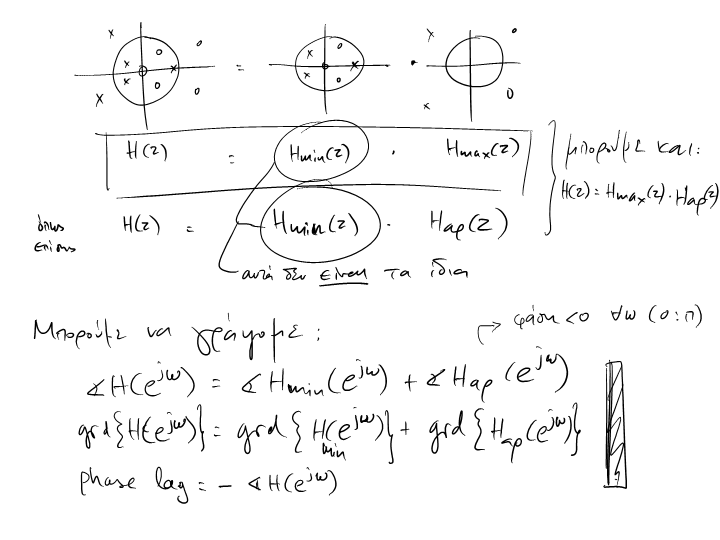 = ·
H(z) = Hmin(z) · Hmax(z)
μπορούμε και:
H(z) = Hmax(z) · Hap(z)
όπως επίσης
H(z) = Hmin(z) · Hap(z)
αυτά δεν είναι τα ίδια
Μπορούμε να γράψουμε:
→ φάση < 0 ∀ω (0:π)
∡H(e^jω) = ∡Hmin(e^jω) + ∡Hap(e^jω)
grd{H(e^jω)} = grd{Hmin(e^jω)} + grd{Hap(e^jω)}
phase lag = - ∡H(e^jω)